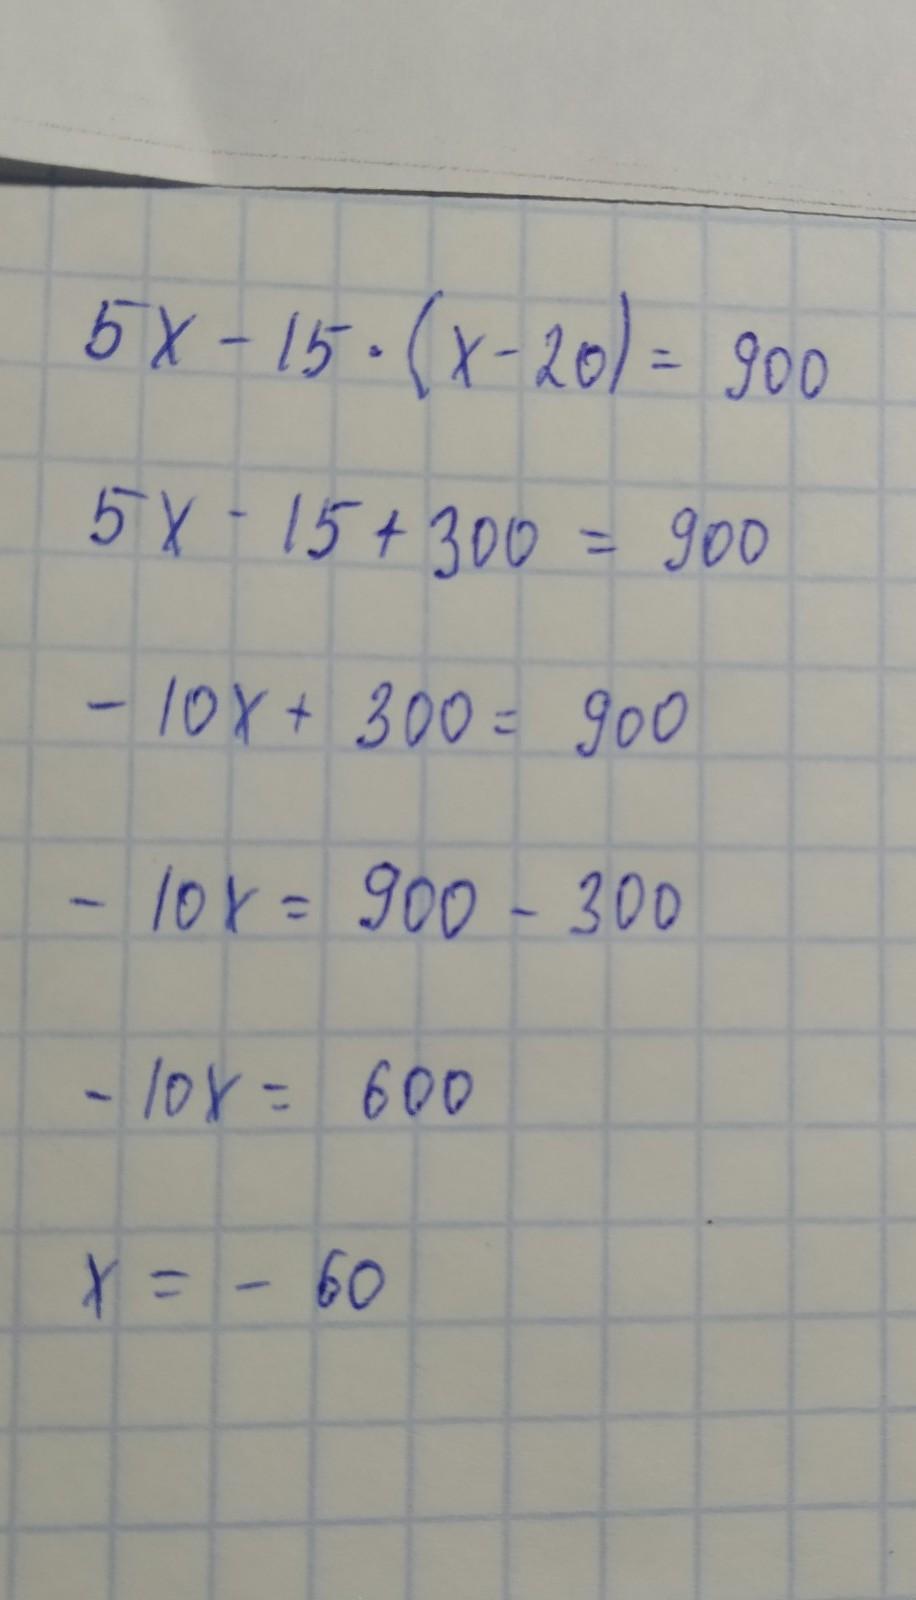 5x - 15 · (x - 20) = 900
5x - 15 + 300 = 900
- 10x + 300 = 900
- 10x = 900 - 300
- 10x = 600
x = - 60